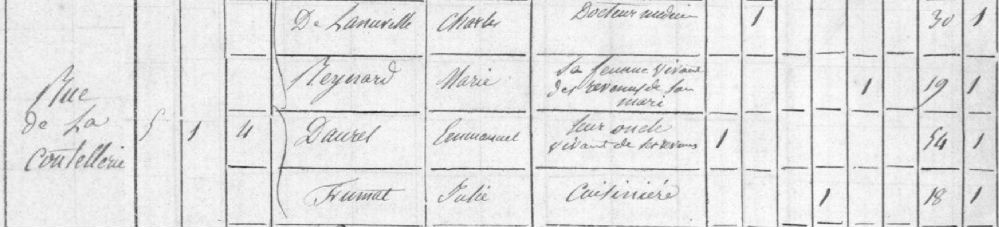 De Lanuville Charles Docteur médecin 1 30 1
Reynard Marie Sa femme vivant
des revenus de son
mari 1 19 1
Rue
de La
Coutellerie 5 1 4 Daurel Emmanuel Leur oncle
vivant de ses revenus 1 54 1
Frumat Julie Cuisinière 1 18 1